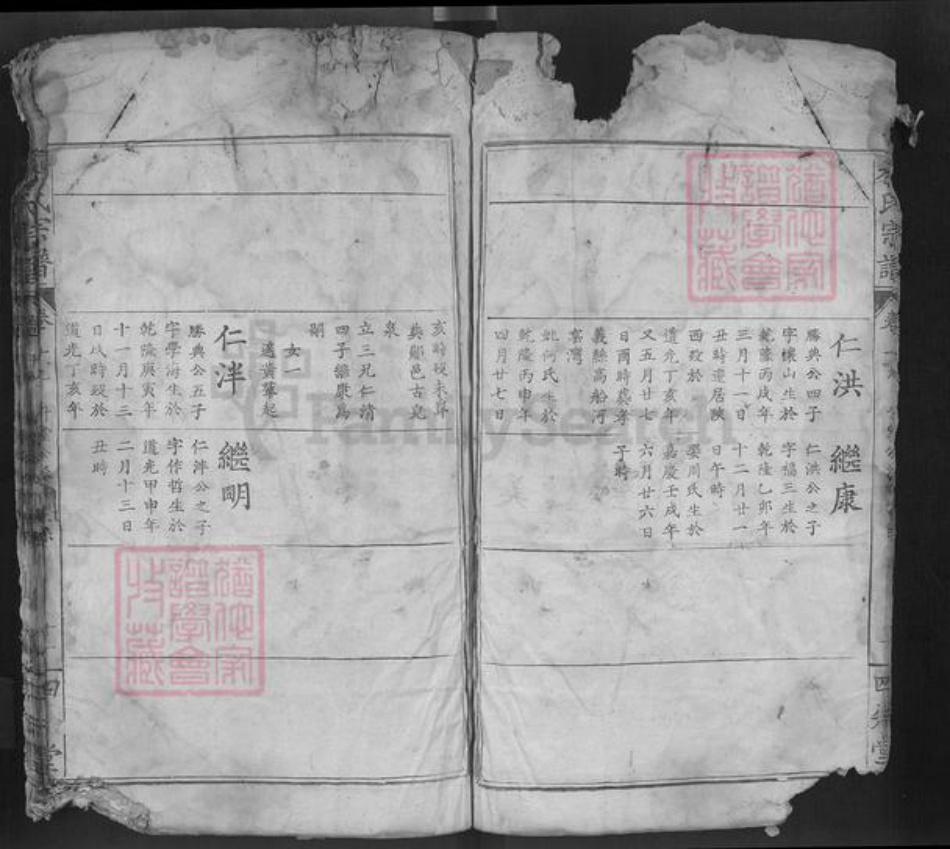 仁洪
勝典公四子
字懷山生於
乾隆丙戌年
三月十一日
丑時遷居陝
西歿於
道光丁亥年
又五月廿七
日酉時葬孝
義縣高船河
窑灣
妣何氏生於
乾隆丙申年
四月廿七日
繼康
仁洪公之子
字福三生於
乾隆乙卯年
十二月廿一
日午時
娶周氏生於
嘉慶壬戌年
六月廿六日
子時
氏宗譜
亥時歿未葬
葬鄖邑古
泉
立三兄仁清
四子繼康為
嗣
女一
適黃肇起
仁泮
勝典公五子
字學海生於
乾隆庚寅年
十一月十三
日戌時歿於
道光丁亥年
繼明
仁泮公之子
字作哲生於
道光甲申年
二月十三日
丑時
FamilySearch